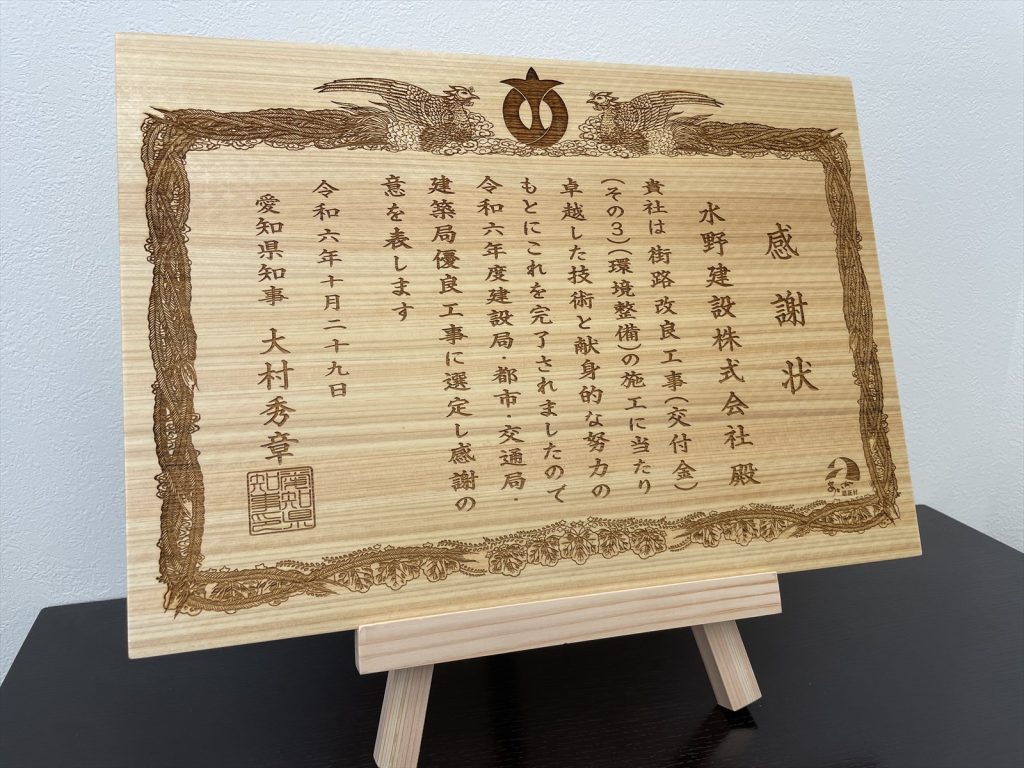 感謝状
水野建設株式会社 殿
貴社は 街路改良工事(交付金)
(その3)(環境整備)の施工に当たり
卓越した技術と献身的な努力の
もとにこれを完了されましたので
令和六年度建設局・都市・交通局・
建築局優良工事に選定し感謝の
意を表します
令和六年十月二十九日
愛知県知事 大村秀章
愛知県
知事之印